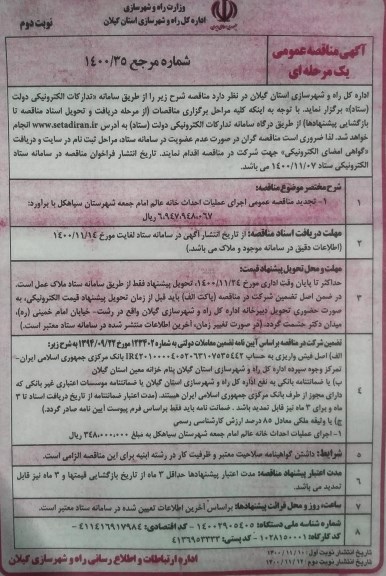 وزارت راه و شهرسازی
اداره کل راه و شهرسازی استان گیلان
نوبت دوم
آگهی مناقصه عمومی
یک مرحله ای
شماره مرجع ۱۴۰۰/۳۵
اداره کل راه و شهرسازی استان گیلان در نظر دارد مناقصه شرح زیر را از طریق سامانه «تدارکات الکترونیکی دولت
(ستاد)» برگزار نماید. با توجه به اینکه کلیه مراحل برگزاری مناقصات (از مرحله دریافت و تحویل اسناد مناقصه تا
بازگشایی پیشنهادها) از طریق درگاه سامانه تدارکات الکترونیکی دولت (ستاد) به آدرس www.setadiran.ir انجام
خواهد شد. لذا ضروری است مناقصه گران در صورت عدم عضویت در سامانه ستاد، مراحل ثبت نام در سایت و دریافت
«گواهی امضای الکترونیکی» جهت شرکت در مناقصه اقدام نمایند. تاریخ انتشار فراخوان مناقصه در سامانه ستاد
۱۴۰۰/۱۱/۰۷ می باشد.
۱
شرح مختصر موضوع مناقصه:
۱- تجدید مناقصه عمومی اجرای عملیات احداث خانه عالم امام جمعه شهرستان سیاهکل با برآورد:
۶،۹۴۷،۹۴۸،۰۶۷ ریال
۲
مهلت دریافت اسناد مناقصه: از تاریخ انتشار آگهی در سامانه ستاد لغایت مورخ ۱۴۰۰/۱۱/۱۴
(اطلاعات دقیق در سامانه موجود و ملاک می باشد.)
۳
مهلت و محل تحویل پیشنهاد قیمت:
حداکثر تا پایان وقت اداری مورخ ۱۴۰۰/۱۱/۲۴، تحویل پیشنهاد فقط از طریق سامانه ستاد ملاک عمل است.
در ضمن اصل تضمین شرکت در مناقصه (پاکت الف) باید قبل از زمان تحویل پیشنهاد قیمت الکترونیکی، به
صورت حضوری تحویل دبیرخانه اداره کل راه و شهرسازی گیلان واقع در رشت- خیابان امام خمینی (ره)،
میدان دکتر حشمت گردد. (در صورت تغییر زمان، آخرین اطلاعات منتشر شده در سامانه ستاد معتبر است.)
۴
تضمین شرکت در مناقصه براساس آیین نامه تضمین معاملات دولتی به شماره ۱۲۳۴۰۲ مورخ ۱۳۹۴/۰۹/۲۲ به شرح زیر:
الف) اصل فیش واریزی به حساب IR۴۲۰۱۰۰۰۰۴۰۵۲۰۶۳۱۰۷۵۳۵۴۴۲ بانک مرکزی جمهوری اسلامی ایران-
تمرکز وجوه سپرده اداره کل راه و شهرسازی استان گیلان پنام خزانه معین استان گیلان
ب) یا ضمانتنامه بانکی به نفع اداره کل راه و شهرسازی استان گیلان یا ضمانتنامه موسسات اعتباری غیر بانکی که
دارای مجوز از طرف بانک مرکزی جمهوری اسلامی ایران هستند. (مدت اعتبار ضمانتنامه از تاریخ دریافت اسناد تا ۳
ماه و برای ۳ ماه نیز قابل تمدید باشد. ضمانت نامه باید فقط براساس فرم پیوست آیین نامه صادر گردد.)
ج) یا وثیقه ملکی معادل ۸۵ درصد ارزش کارشناسی رسمی
۱- اجرای عملیات احداث خانه عالم امام جمعه شهرستان سیاهکل به مبلغ ۳۴۸،۰۰۰،۰۰۰ ریال
۵
شرایط: داشتن گواهینامه صلاحیت معتبر و ظرفیت کار در رشته ابنیه برای این مناقصه الزامی است.
۶
مدت اعتبار پیشنهاد مناقصه: مدت اعتبار پیشنهادها حداقل ۳ ماه از تاریخ بازگشایی قیمتها و ۳ ماه نیز قابل
تمدید می باشد.
۷
ساعت، روز و محل قرائت پیشنهادها: براساس آخرین اطلاعات تعیین شده در سامانه ستاد معتبر است.
۸
شماره شناسه ملی دستگاه: ۱۴۰۰۰۲۹۰۵۴۰۵ - کد اقتصادی: ۴۱۱۴۱۶۹۱۷۹۸۴ -
کد کارگاه: ۱۰۲۸۱۵۰۰۰۱ - کدپستی: ۴۱۳۶۹۵۳۳۳۳
تاریخ انتشار نوبت اول: ۱۴۰۰/۱۱/۱۰
تاریخ انتشار نوبت دوم: ۱۴۰۰/۱۱/۱۲
اداره ارتباطات و اطلاع رسانی راه و شهرسازی گیلان